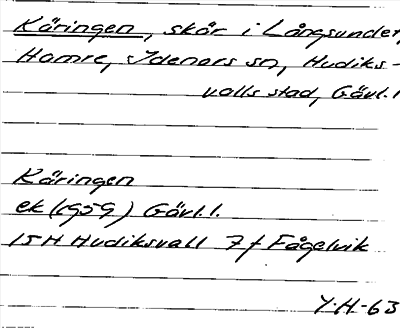 Käringen, skär i Långsundet,
Hamre, Idenors sn, Hudiks-
valls stad, Gävl.l
Käringen
ek (1959) Gävl.l.
15H Hudiksvall 7f Fågelvik
Y.H-63